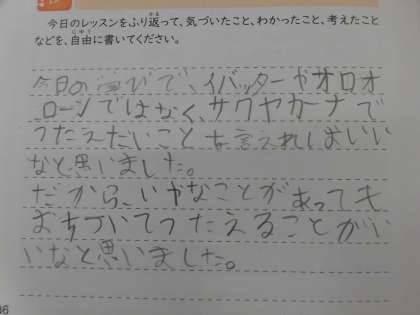 今日のレッスンをふり返って、気づいたこと、わかったこと、考えたこと
などを、自由に書いてください。
今日の学びで、イバッターやオロオ
ローンではなく、サワヤカーナで
つたえたいことを言えればいい
なと思いました。
だから、いやなことがあっても
おちついてつたえることがい
いなと思いました。
36